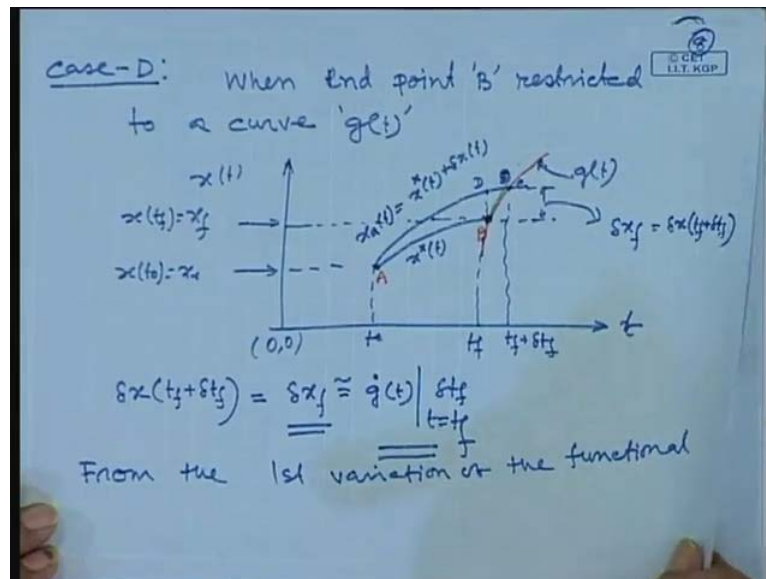 8
© CET
I.I.T. KGP
Case-D: When End point 'B' restricted
to a curve 'g(t)'
x(t)
xₐ(t) = x*(t) + δx(t)
g(t)
x(t_f) = x_f
D
C
B
δx_f = δx(t_f+δt_f)
x*(t)
x(t₀) = x₀
A
(0,0)
t₀
t_f
t_f+δt_f
t
δx(t_f+δt_f) = δx_f ≅ ġ(t)|_{t=t_f} δt_f
From the 1st variation of the functional